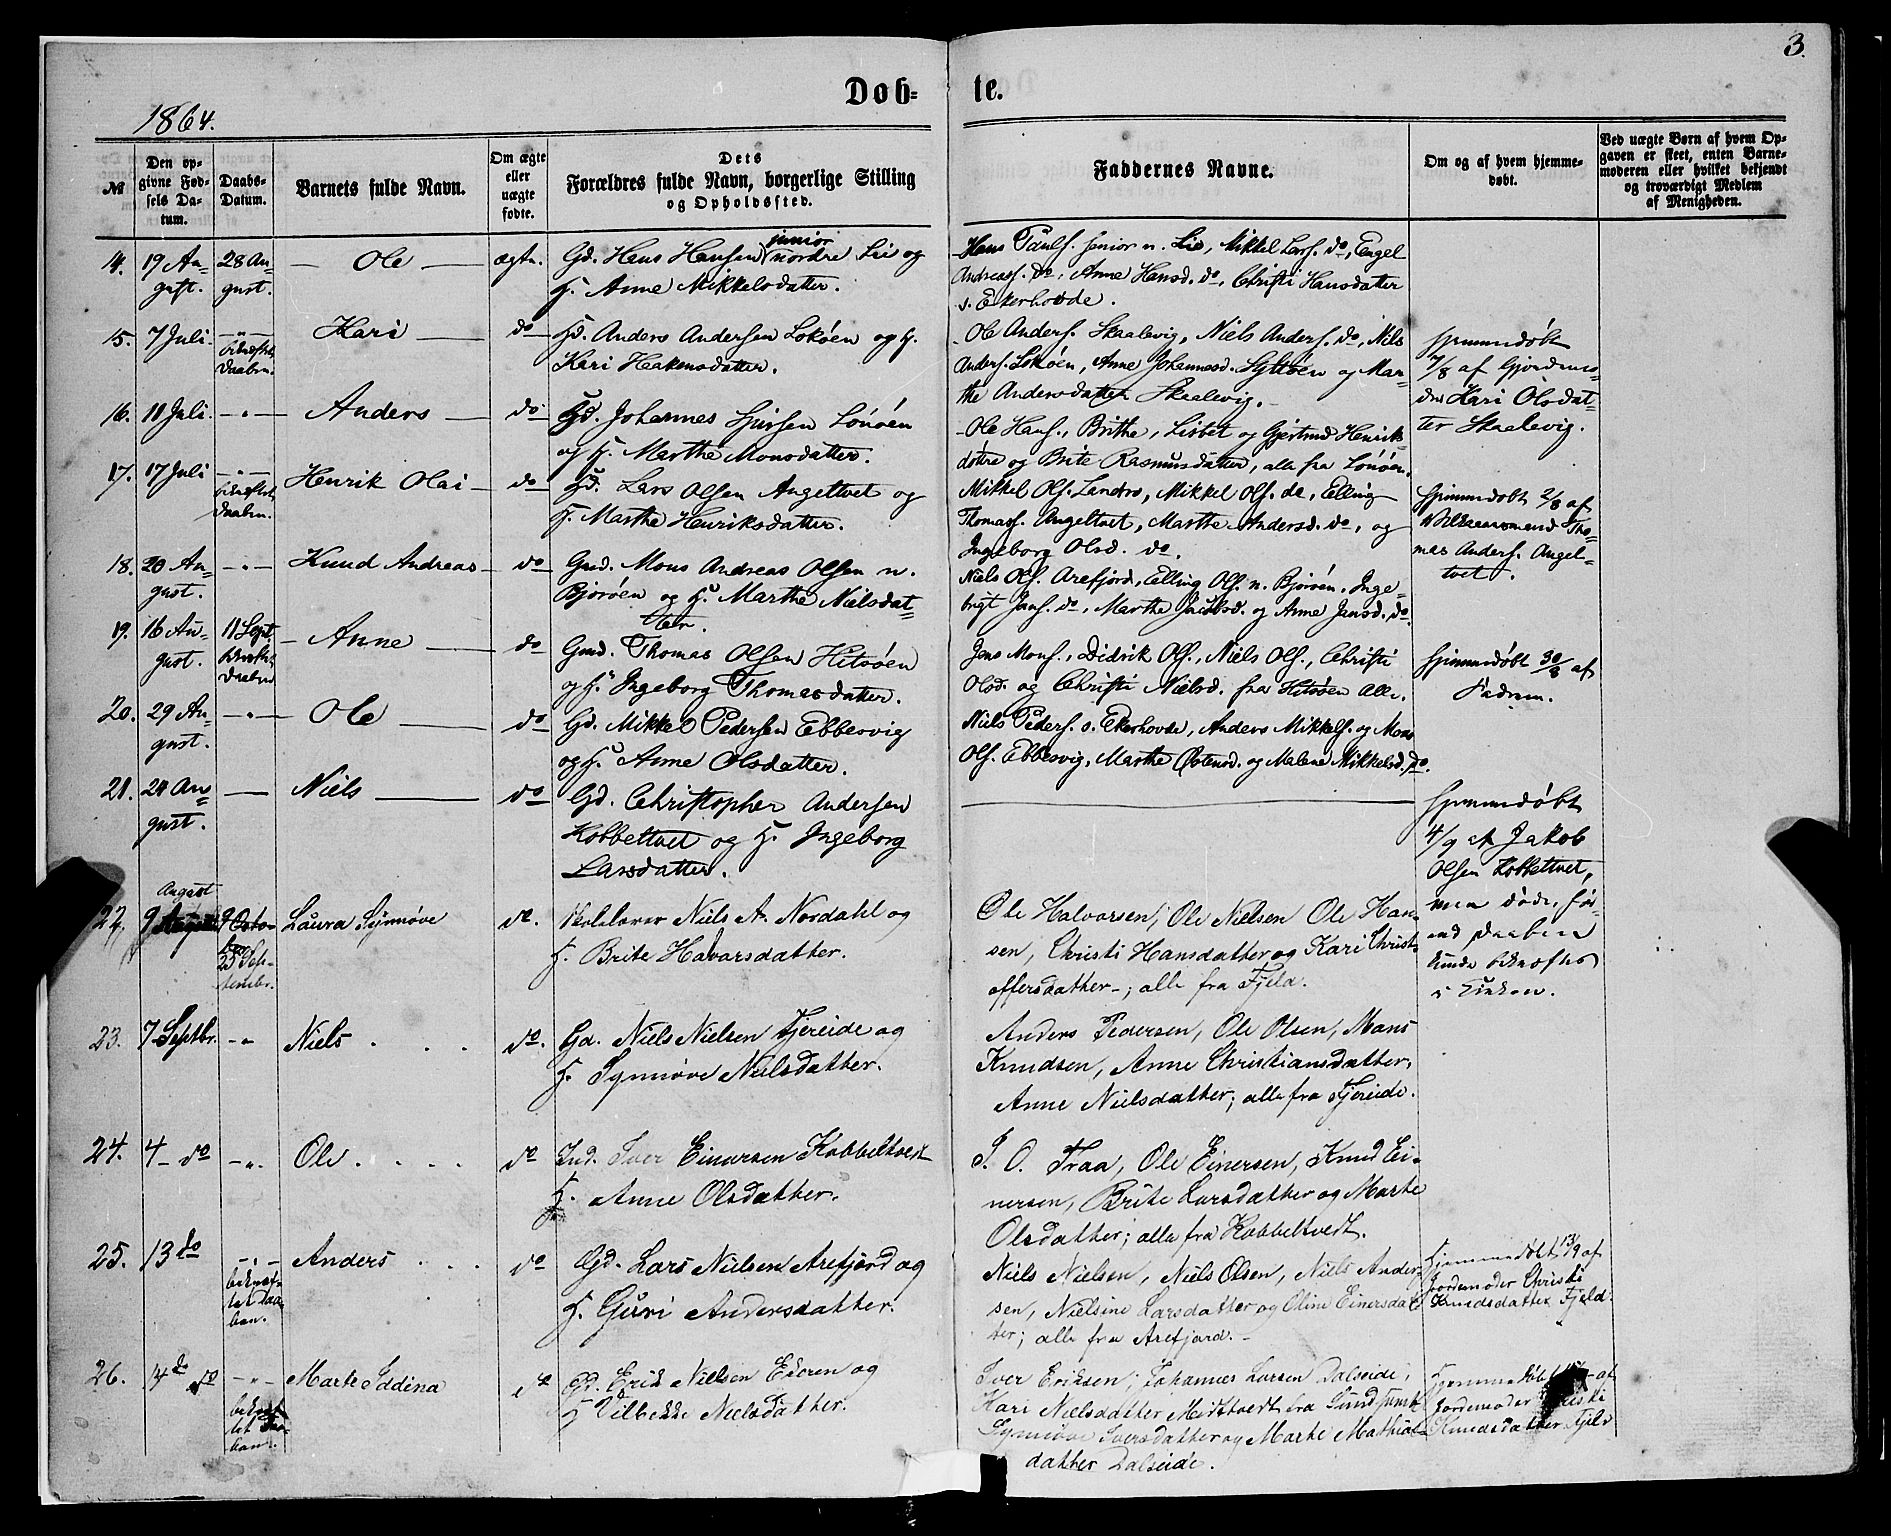 3.
Døb-
te.
1864.
№
Den op-
givne Fød-
sels Da-
tum.
Daabs-
Datum.
Barnets fulde Navn.
Om ægte
eller
uægte
fødte.
Dets
Forældres fulde Navn, borgerlige Stilling
og Opholdssted.
Faddernes Navne.
Om og af hvem hjemme-
døbt.
Ved uægte Børn af hvem Op-
gaven er skeet, enten Barne-
moderen eller hvilket bekjendt
og troværdigt Medlem
af Menigheden.
14. 19 Au-
gust.
28 Au-
gust.
Ole
ægte.
junior
Gd. Hans Hansen nordre Lie og
H. Anne Mikkelsdatter.
Hans Pauls. senior n. Lie, Mikkel Lars. do, Engel
Andreass. do, Anne Hansd. do, Christi Hansdatter
s. Ekerhovde.
15. 7 Juli.
bekræftet
Daaben.
Kari
do
Gd. Anders Andersen Lokøen og H.
Kari Hakensdatter.
Ole Anders. Skaalevig, Niels Anders. do, Niels
Anders. Lokøen, Anne Johannesd. Syltøen og Mar-
the Andersdatter Skaalevig.
hjemmedøbt
7/8 af Gjordemo-
der Kari Olsdat-
ter Skaalevig.
16. 11 Juli.
Anders
do
Gd. Johannes Sjursen Lønøen
og H. Marthe Monsdatter.
Ole Hans., Brithe, Lisbet og Gjertrud Henriks-
døttre og Brite Rasmusdatter, alle fra Lønøen.
17. 17 Juli
bekræftet
Daaben.
Henrik Olai
do
Gd. Lars Olsen Angeltvet og
H. Marthe Henriksdatter.
Mikkel Ols. Landro, Mikkel Ols. do, Elling
Thomass. Angeltvet, Marthe Andersd. do, og
Ingeborg Olsd. do.
hjemmedøbt 2/8 af
Thomas Anders. Angel-
tvet.
18. 20 Au-
gust.
Knud Andreas
do
Gmd. Mons Andreas Olsen n.
Bjorøen og H. Marthe Nielsdat-
ter.
Niels Ols. Arefjord, Elling Ols. n. Bjorøen, Inge-
brigt Jans. do, Marthe Jacobsd. og Anne Jensd. do.
19. 16 Au-
gust.
11 Sept.
bekræftet
Daaben
Anne
do
Gmd. Thomas Olsen Hitsøen
og H. Ingeborg Thomasdatter.
Jens Mons., Didrik Ols., Niels Ols., Christi
Olsd. og Christi Nielsd. fra Hitsøen alle.
hjemmedøbt 30/8 af
Fadren.
20. 29 Au-
gust.
Ole
do
Gd. Mikkel Pedersen Ebbesvig
og H. Anne Olsdatter.
Niels Peders. s. Ekerhovde, Anders Mikkels. og Mons
Ols. Ebbesvig, Marthe Østensd. og Malene Mikkelsd. do.
21. 24 Au-
gust.
Niels
do
Gd. Christopher Andersen
Kobbeltvet og H. Ingeborg
Larsdatter.
hjemmedøbt
4/9 af Jakob
Olsen Kobbeltvet,
men døde, før-
end Daaben
kunde bekræftes
i Kirken.
22. August
9
9 Octo-
ber
25 Sep-
tembr.
Laura Synnøve
do.
Skolelærer Niels A. Nordahl og
H. Brite Havarsdatter.
Ole Halvorsen, Ole Nielsen Ole Han-
sen, Christi Hansdatter og Kari Christ-
offersdatter; alle fra Fjeld.
23. 7 Septbr.
Niels
do.
Gd. Niels Nielsen Fjereide og
H. Synnøve Nielsdatter.
Anders Pedersen, Ole Olsen, Mons
Knudsen, Anne Christiansdatter,
Anne Nielsdatter; alle fra Fjereide.
24. 4 do
Ole
do
Ind. Iver Einersen Kobbeltvedt
H. Anne Olsdatter.
I. O. Traa, Ole Einersen, Knud Ei-
nersen, Brite Larsdatter og Marte
Olsdatter; alle fra Kobbeltvedt.
25. 13 do
bekræf-
tet Daa-
ben.
Anders
do
Gd. Lars Nielsen Arefjord og
H. Guri Andersdatter.
Niels Nielsen, Niels Olsen, Niels Ander-
sen, Nielsine Larsdatter og Oline Einersdat-
ter; alle fra Arefjord.
Hjemmedøbt 13/9 af
Jordemoder Christi
Knudsdatter Fjeld.
26. 14 do
bekræf-
tet Daa-
ben.
Marte
do
Gd. Erik Nielsen og
H. Vilbekke Nielsdatter.
Iver Eriksen, Johannes Larsen Dalseide,
Kari Nielsdatter Midttvedt fra Sund
Synnøve Iversdatter og Marte Mathias-
datter Dalseide.
Hjemmedøbt af
Jordemoder Christi
Knudsdatter Fjeld